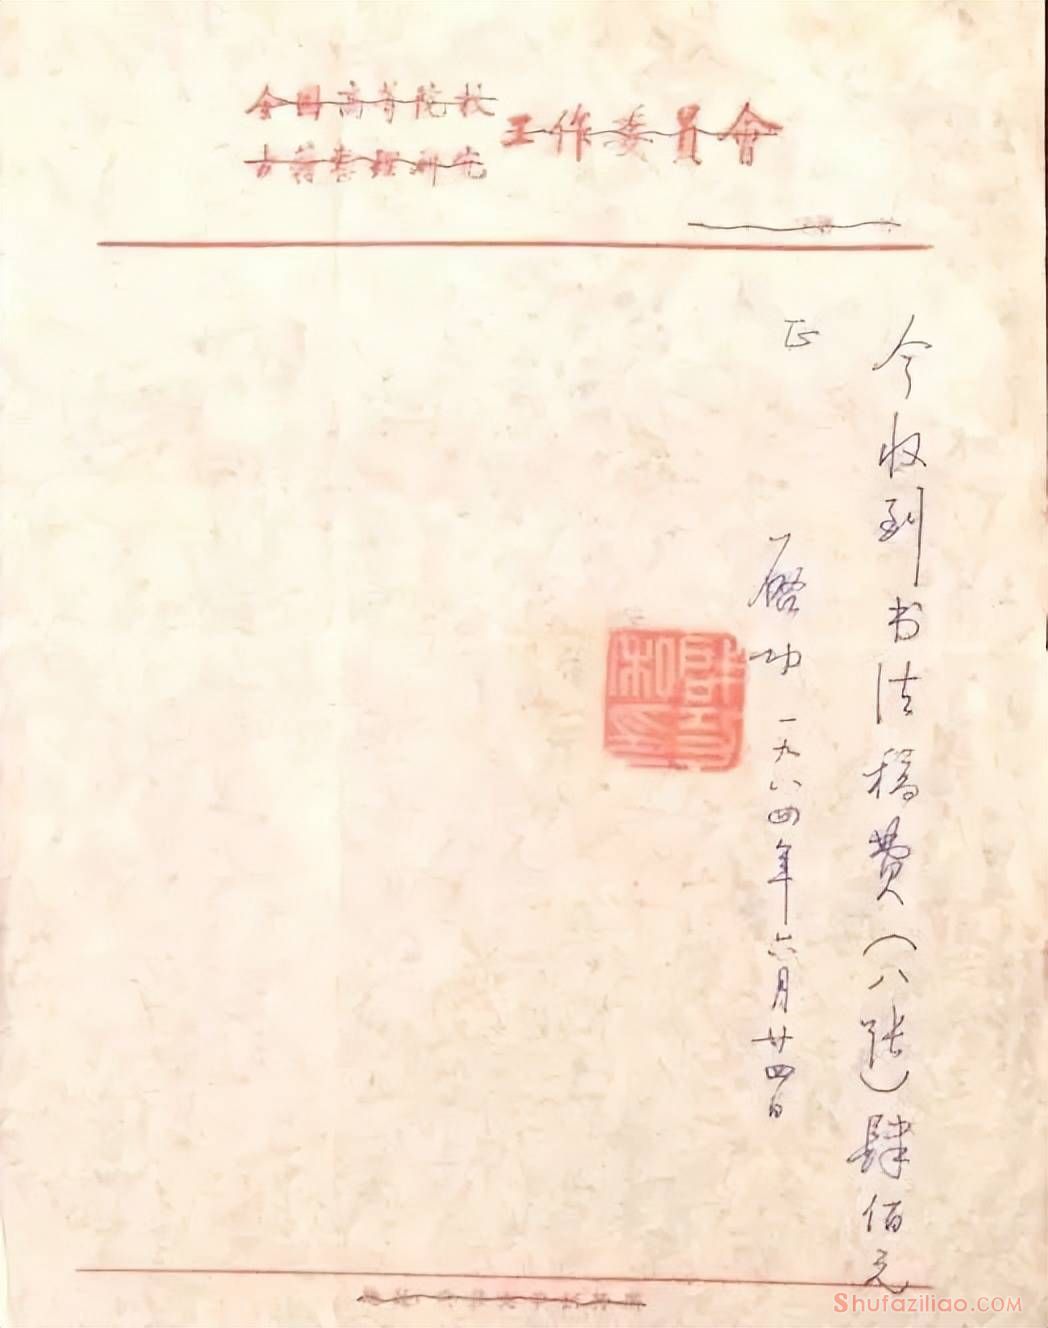 全国高等院校
古籍整理研究
工作委員會
今收到书法稿费（八张）肆佰元
正
启功 一九八四年六月廿四日
Shufaziliao.COM